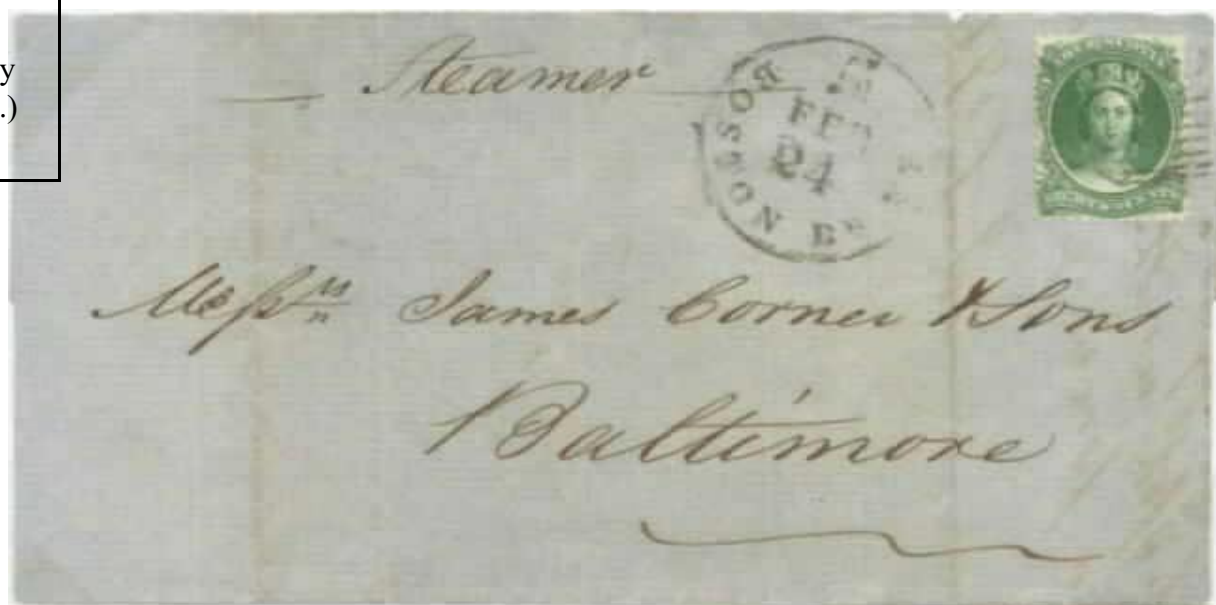 y
.)
Steamer
BOSTON BR
FEB
24
Messrs James Corner & Sons
Baltimore